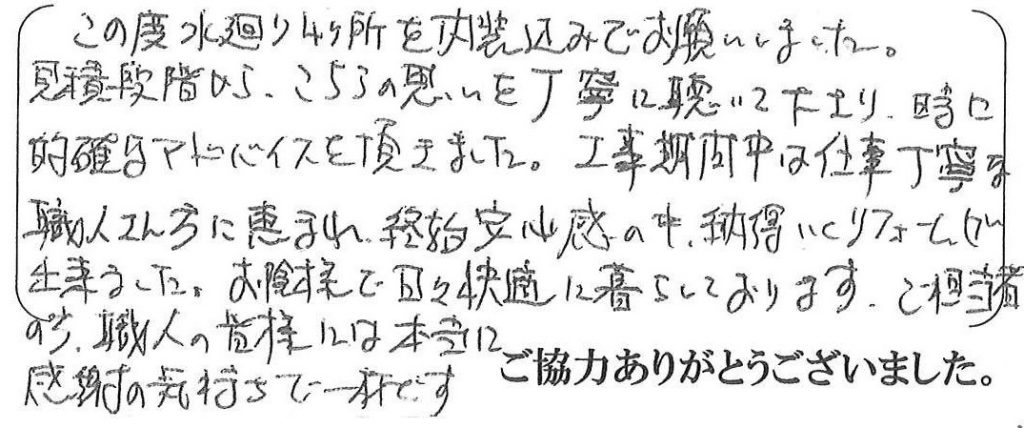 この度水廻り4ヶ所を内装込みでお願いしました。
見積段階から、こちらの思いを丁寧に聴いて下さり、時に
的確なアドバイスを頂きました。工事期間中は仕事丁寧な
職人さん方に恵まれ、終始安心感の中、納得いくリフォームが
出来ました。お陰様で日々快適に暮らしております。ご担当者
の方、職人の皆様には本当に
感謝の気持ちで一杯です
ご協力ありがとうございました。